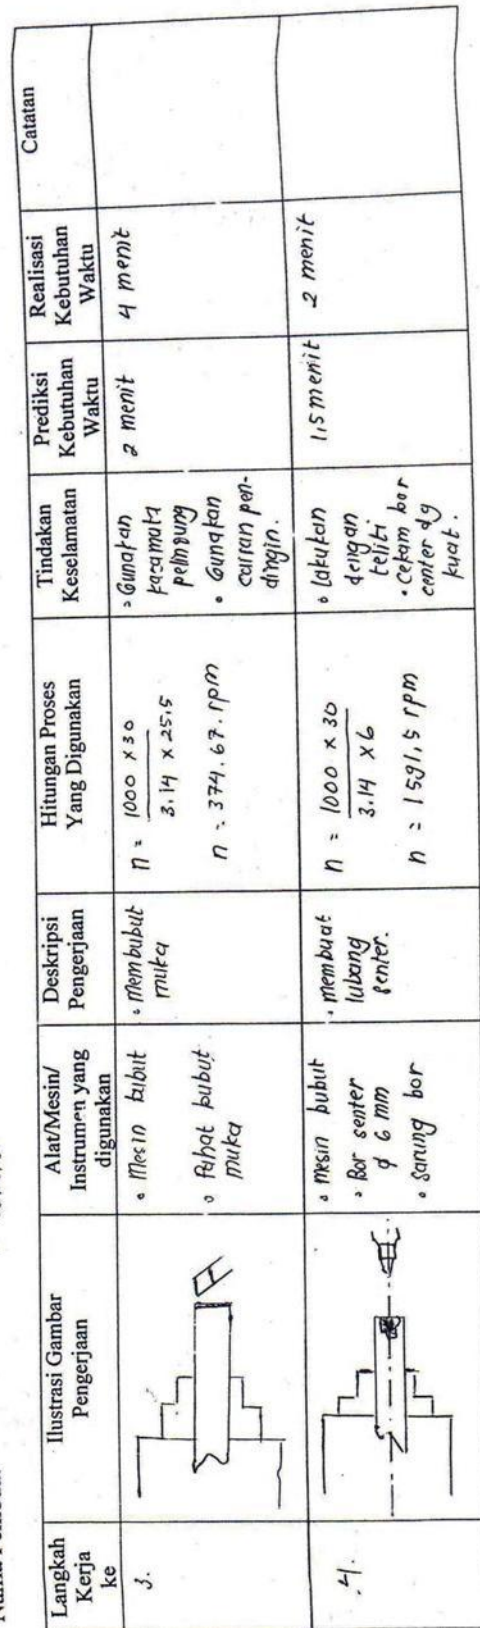 Langkah
Kerja
ke
Ilustrasi Gambar
Pengerjaan
Alat/Mesin/
Instrumen yang
digunakan
Deskripsi
Pengerjaan
Hitungan Proses
Yang Digunakan
Tindakan
Keselamatan
Prediksi
Kebutuhan
Waktu
Realisasi
Kebutuhan
Waktu
Catatan
3.
• Mesin bubut
• Pahat bubut
muka
• Membubut
muka
n = 1000 x 30
3.14 x 25,5
n = 374.67. rpm
• Gunakan
kacamata
pelindung
• Gunakan
cairan pen-
dingin.
2 menit
4 menit
4.
• Mesin bubut
• Bor senter
ø 6 mm
• Sarung bor
• membuat
lubang
senter.
n = 1000 x 30
3.14 x 6
n = 1591,5 rpm
• lakukan
dengan
teliti
• Cekam bor
center dg
kuat.
1,5 menit
2 menit